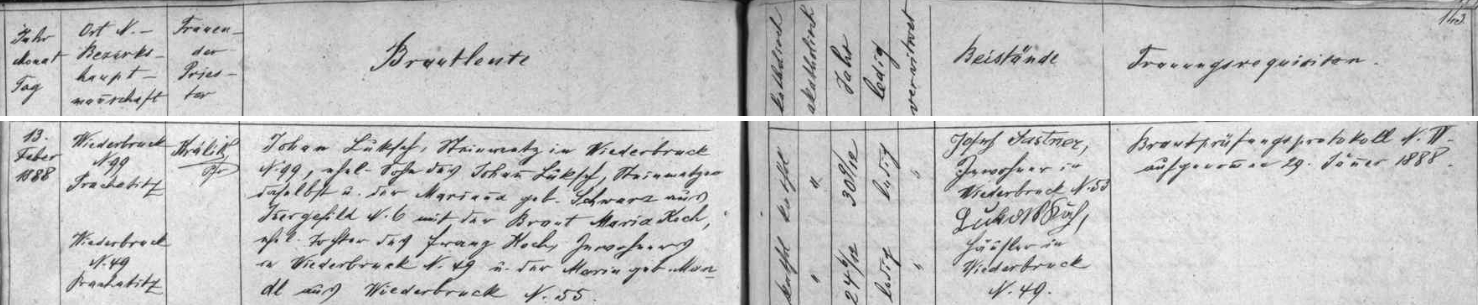 143.
Jahr
Monat
Tag
Ort N.-
Bezirks-
haupt-
mannschaft
Trauen-
der
Pries-
ter
Brautleute
katholisch
akatholisch
Jahr
ledig
verwitwet
Beistände
Trauungsrequisiten.
13.
Feber
1888
Wiederbruck
N 99
Prachatitz
Králik
Johann Luksch, Steinmetz in Wiederbruck
N. 99, ehel. Sohn des Johann Luksch, Steinmetzen
daselbst u. der Marianna geb. Schwarz aus
Isergefild N. 6 mit der Braut Maria Koch,
ehel. Tochter des Franz Koch, Inwohners
in Wiederbruck N. 49 u. der Maria geb. Man-
dl aus Wiederbruck N. 55.
Wiederbruck
N. 49
Prachatitz
kathol
"
ledig
"
kathol
"
ledig
"
Josef Fastner,
Inwohner in
Wiederbruck N. 53
Häusler in
Wiederbruck
N. 49.
Brautprüfungsprotokoll N. IV.
aufgenommen 29. Jänner 1888.